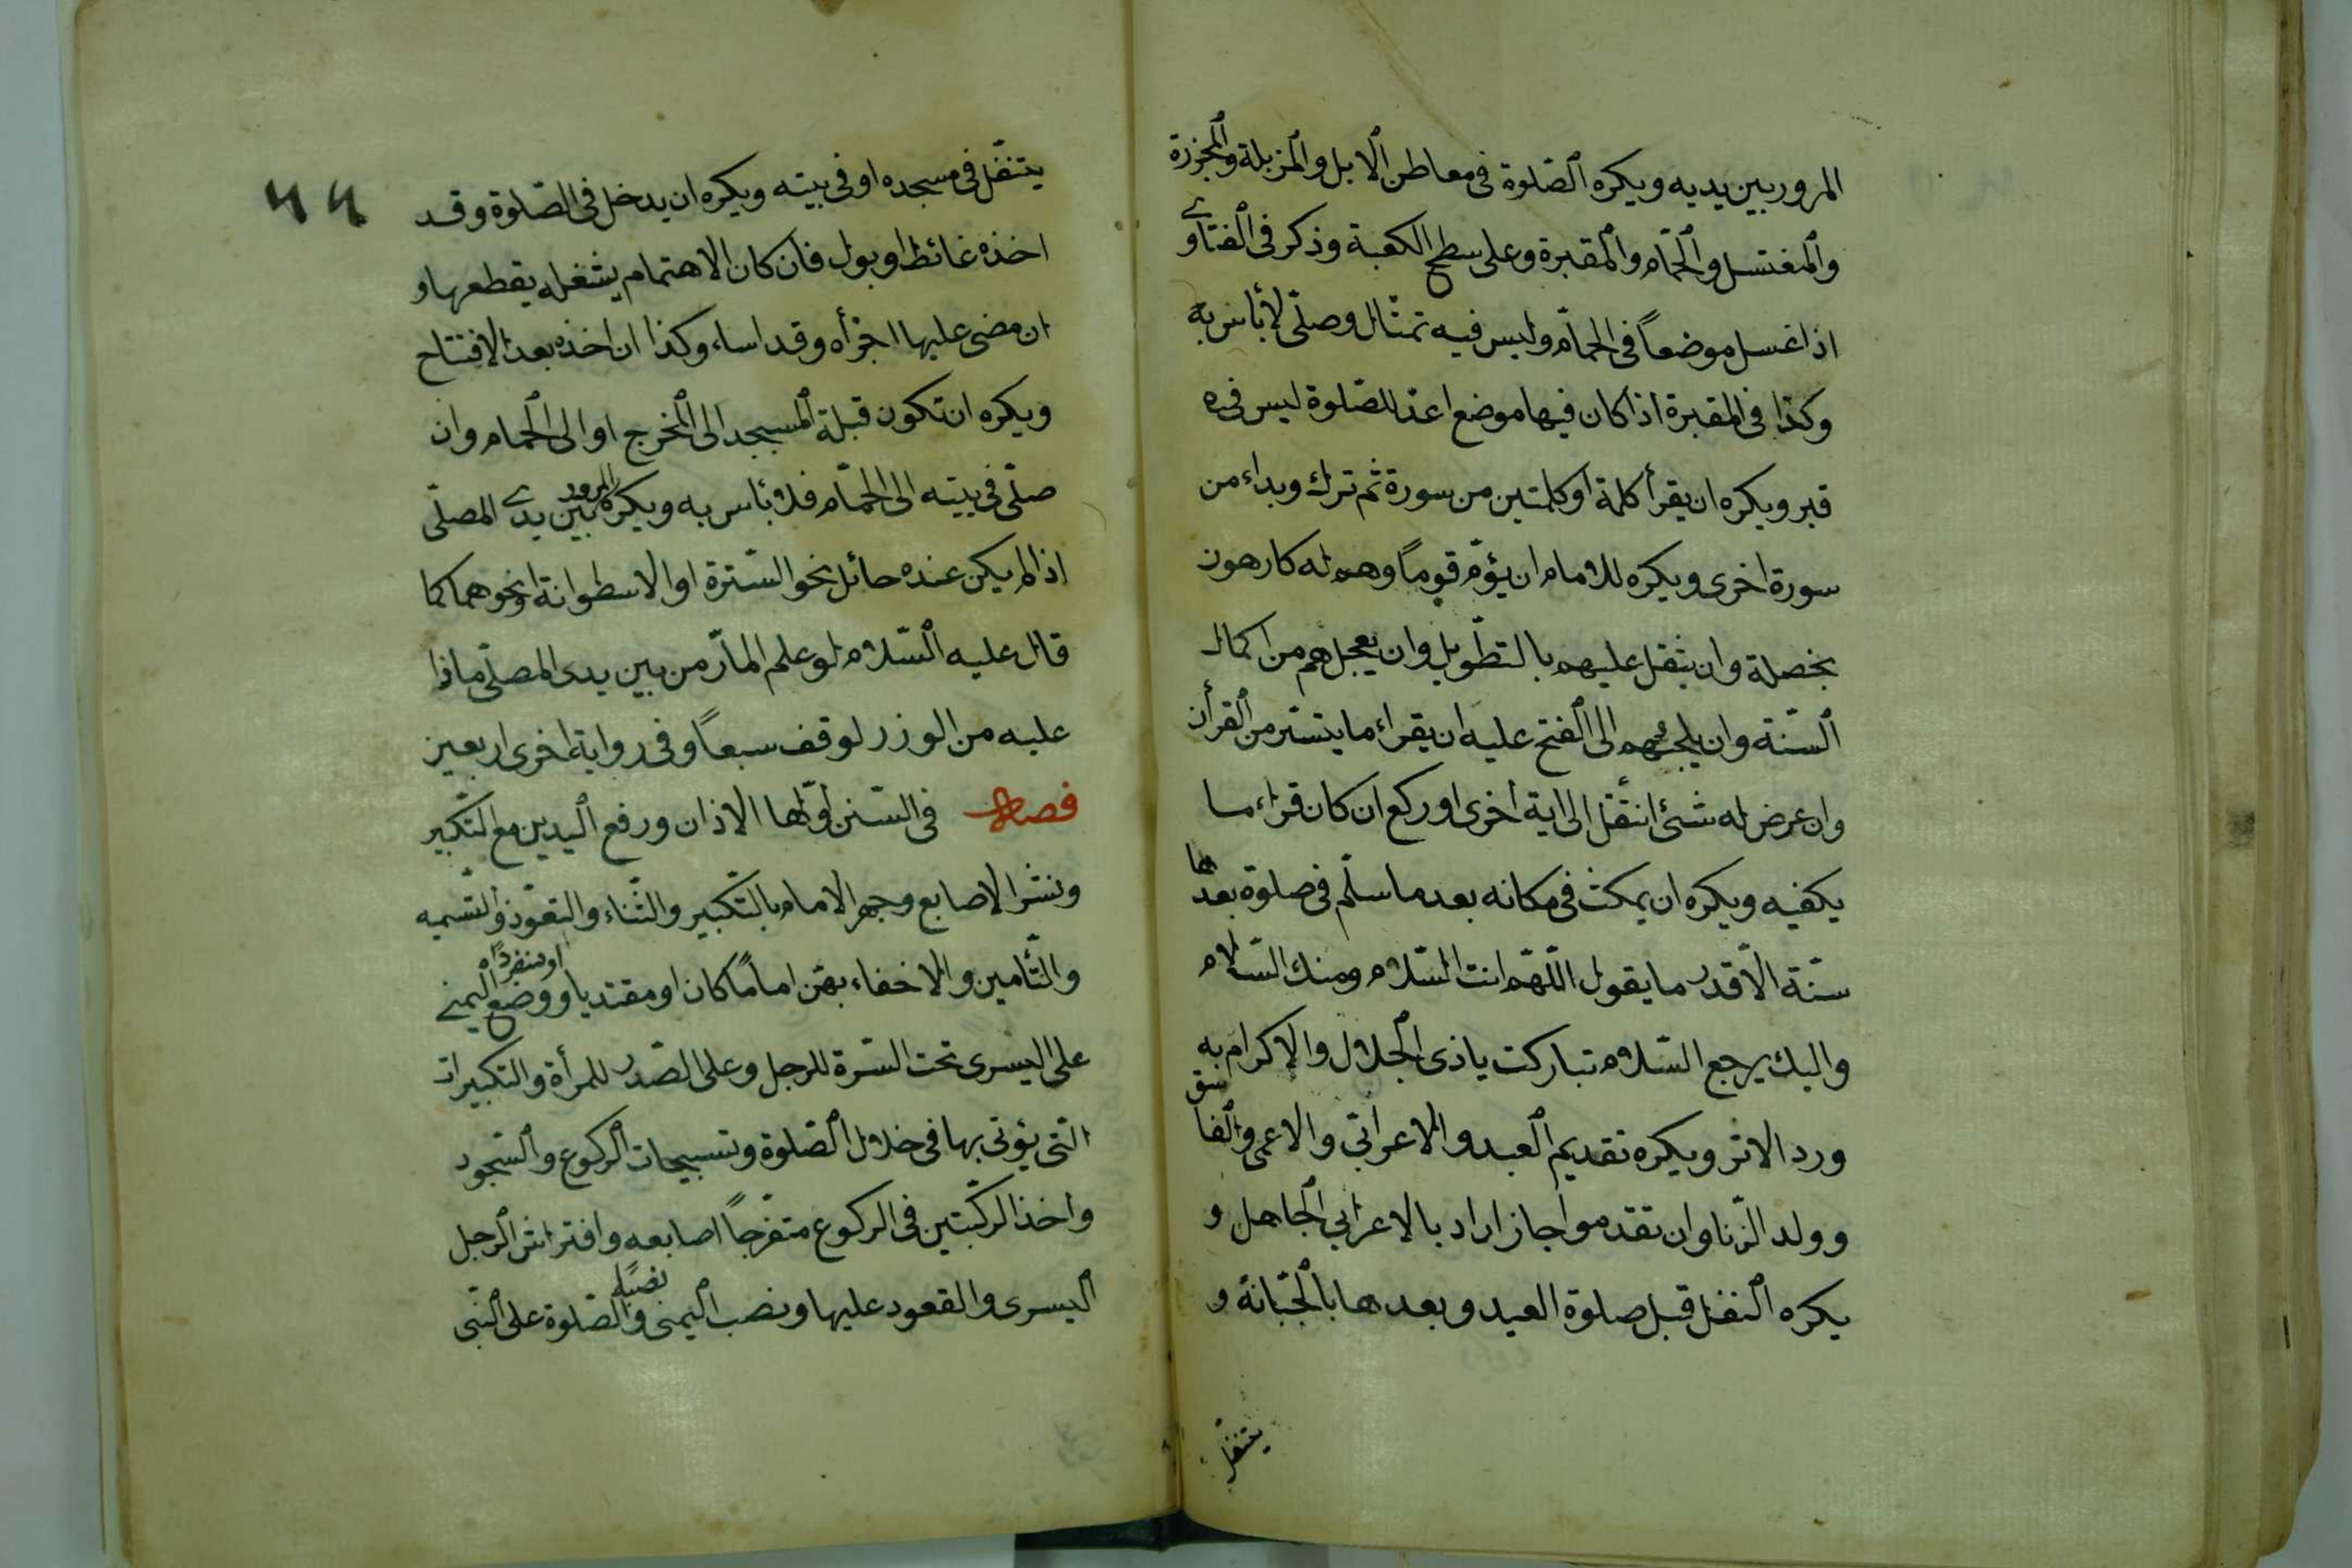 المرور بين يديه ويكره الصّلوة فى معاطن الابل والمزبلة والمجزرة
والمغتسل والحمّام والمقبرة وعلى سطح الكعبة وذكر فى الفتاوى
اذا غسل موضعاً فى الحمّام وليس فيه تمثال وصلّى لا بأس به
وكذا فى المقبرة اذا كان فيها موضع اعدّ للصّلوة ليس فيه
قبر ويكره ان يقرأ كلمة او كلمتين من سورة ثم ترك وبداء من
سورة اخرى ويكره للامام ان يؤمّ قوماً وهم له كارهون
بخصلة وان يثقل عليهم بالتطّويل وان يعجلهم من اكمال
السّنّة وان يلجئهم الى الفتح عليه ان يقراء ما يتسّر من القرأن
وان عرض له شئ انتقل الى اية اخرى او ركع ان كان قراء ما
يكفيه ويكره ان يمكث فى مكانه بعد ما سلّم فى صلوة بعدها
سنّة الّا قدر ما يقول اللّهمّ انت السّلام ومنك السّلام
واليك يرجع السّلام تباركت ياذى الجلال والاكرام به
ورد الاثر ويكره تقديم العبد والاعرابّى والاعمى والفاسق
وولد الزّنا وان تقدموا جاز اراد بالاعرابى الجاهل و
يكره النفل قبل صلوة العيد وبعدها بالجبّانة و
يتنفّل
٦٦
يتنفّل فى مسجده او فى بيته ويكره ان يدخل فى الصّلوة وقد
اخذه غائط او بول فان كان الاهتمام يشغله يقطعها و
ان مضى عليها اجزأه وقد اساء وكذا ان اخذه بعد الافتتاح
ويكره ان تكون قبلة المسجد الى المخرج او الى الحمام وان
صلّى فى بيته الى الحمّام فلا بأس به ويكره المرور بين يدى المصلّى
اذا لم يكن عنده حائل نحو السّترة او الاسطوانة او نحوهما كما
قال عليه السّلام لو علم المارّ من بين يدى المصلّى ماذا
عليه من الوزر لوقف سبعاً وفى رواية اخرى اربعين
فصل فى السّنن اوّلها الاذان ورفع اليدين مع التّكبير
ونشر الاصابع وجهر الامام بالتّكبير والثّناء والتعوّذ والتّسميه
والتّأمين والاخفاء بهنّ اماماً كان او مقتديا او منفردًا ووضع اليمنى
على اليسرى تحت السّرة للرجل وعلى الصّدر للمرأة والتكبيرات
التى يؤتى بها فى خلال الصّلوة وتسبيحات الركوع والسّجود
واخذ الركبتين فى الركوع متفرّجاً اصابعه وافتراش الرجل
اليسرى والقعود عليها ونصب اليمنى والصّلوة على النّبى